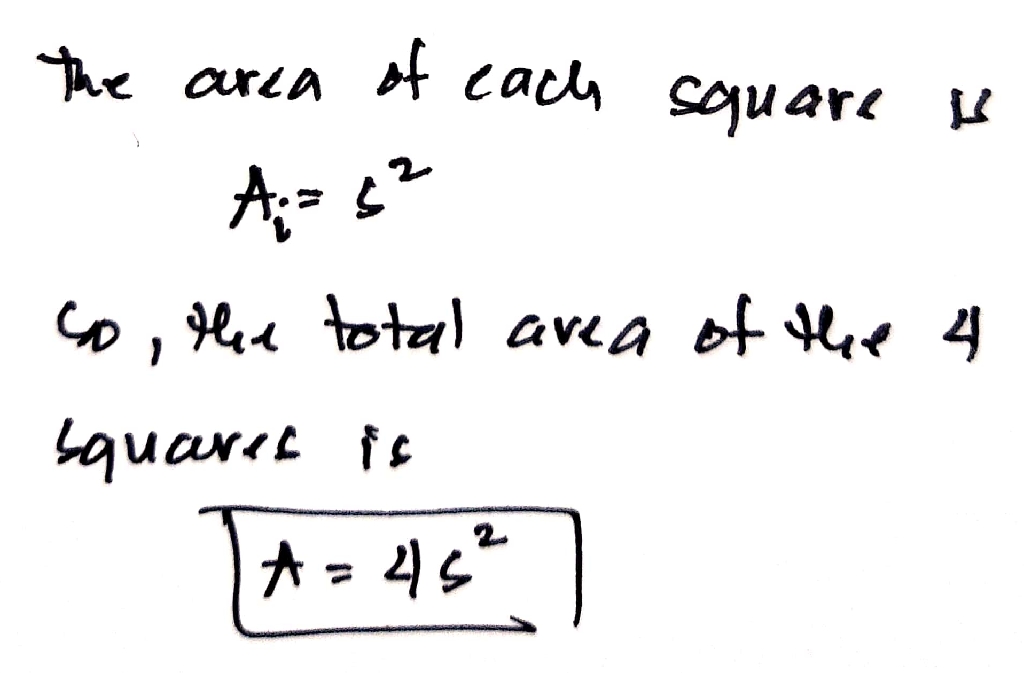 The area of each square is
Aᵢ = s²
So, the total area of the 4
squares is
A = 4s²